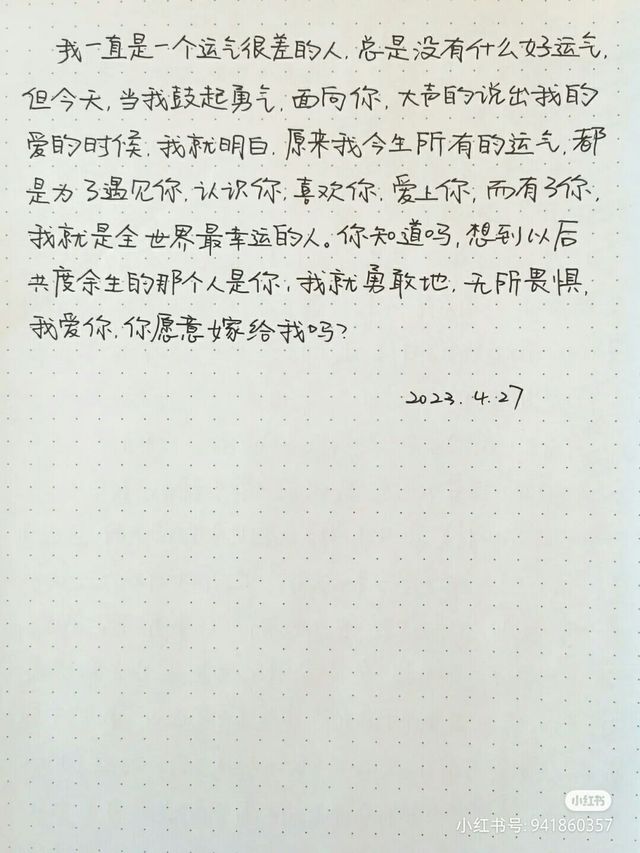 我一直是一个运气很差的人，总是没有什么好运气，
但今天，当我鼓起勇气，面向你，大声的说出我的
爱的时候，我就明白，原来我今生所有的运气，都
是为了遇见你，认识你，喜欢你，爱上你，而有了你，
我就是全世界最幸运的人。你知道吗，想到以后
共度余生的那个人是你，我就勇敢地，无所畏惧，
我爱你，你愿意嫁给我吗？
2023.4.27
小红书
小红书号:941860357